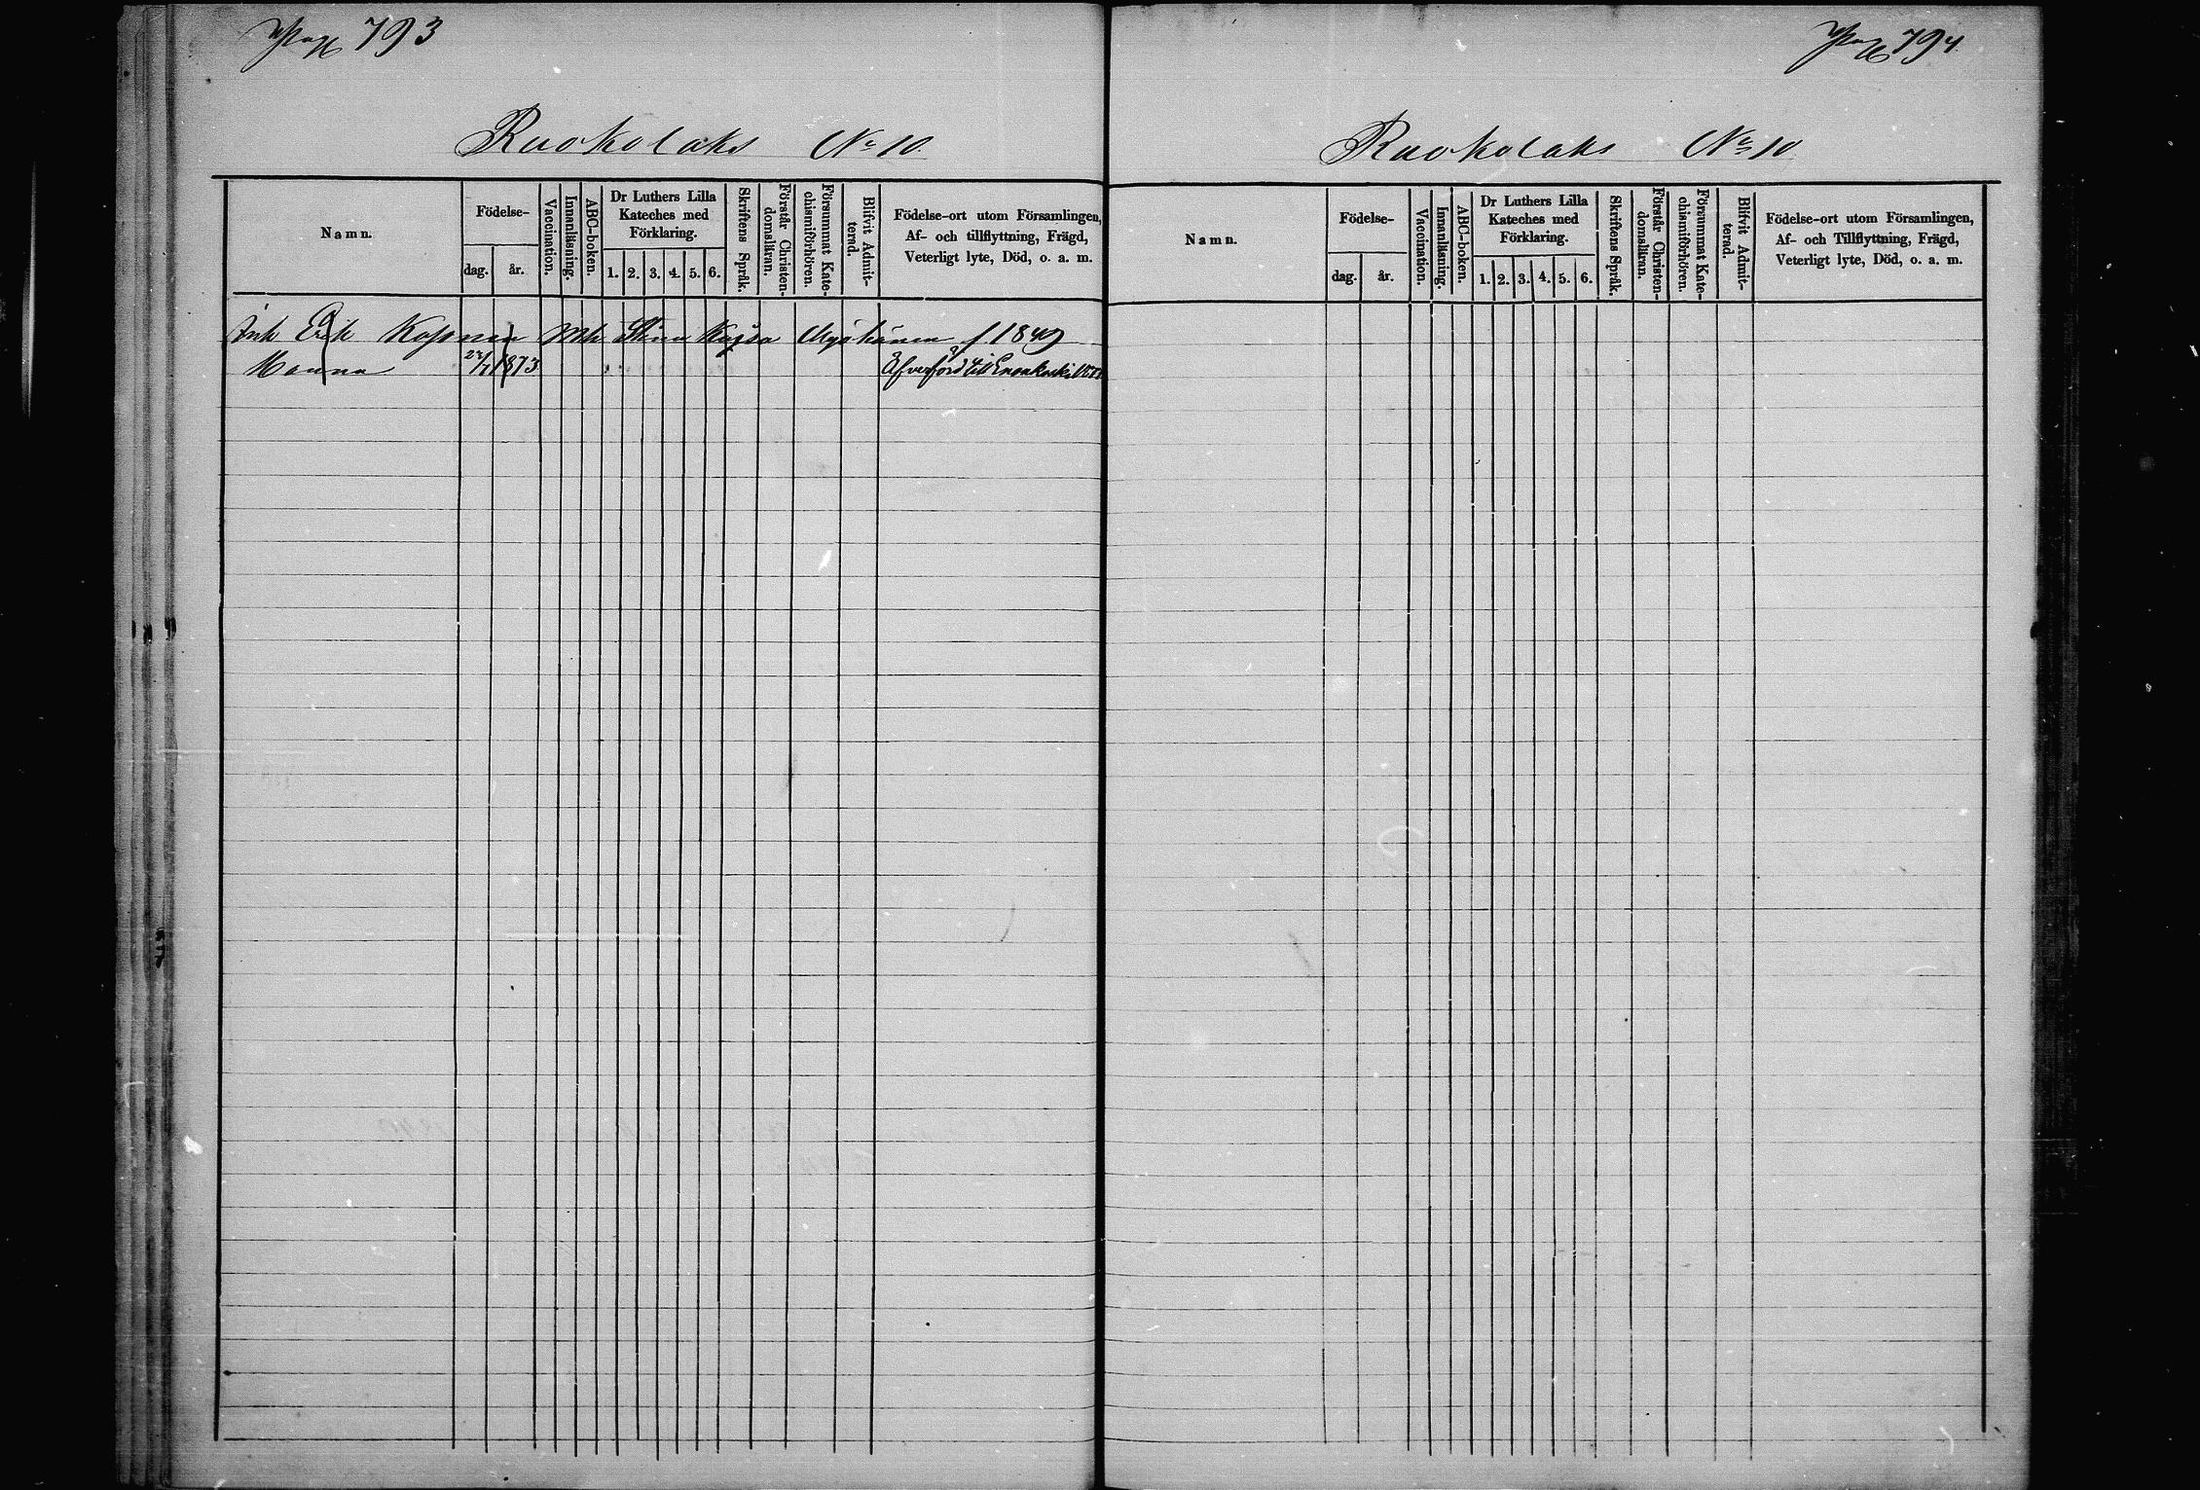 Pag 793
Ruokolaks No 10
Namn.
Födelse-
dag.
år.
Vaccination.
Innanläsning.
ABC-boken.
Dr Luthers Lilla
Kateches med
Förklaring.
1. 2. 3. 4. 5. 6.
Skriftens Språk.
Förstår Christen-
domsläran.
Försummat Kate-
chismiförhören.
Blifvit Admit-
terad.
Födelse-ort utom Församlingen,
Af- och tillflyttning, Frägd,
Veterligt lyte, Död, o. a. m.
Erik Mh Stina Kajsa f 1849
Manna 1873 Öfverförd till Enonkoski
Pag 794
Ruokolaks No 10
Namn.
Födelse-
dag.
år.
Vaccination.
Innanläsning.
ABC-boken.
Dr Luthers Lilla
Kateches med
Förklaring.
1. 2. 3. 4. 5. 6.
Skriftens Språk.
Förstår Christen-
domsläran.
Försummat Kate-
chismiförhören.
Blifvit Admit-
terad.
Födelse-ort utom Församlingen,
Af- och Tillflyttning, Frägd,
Veterligt lyte, Död, o. a. m.